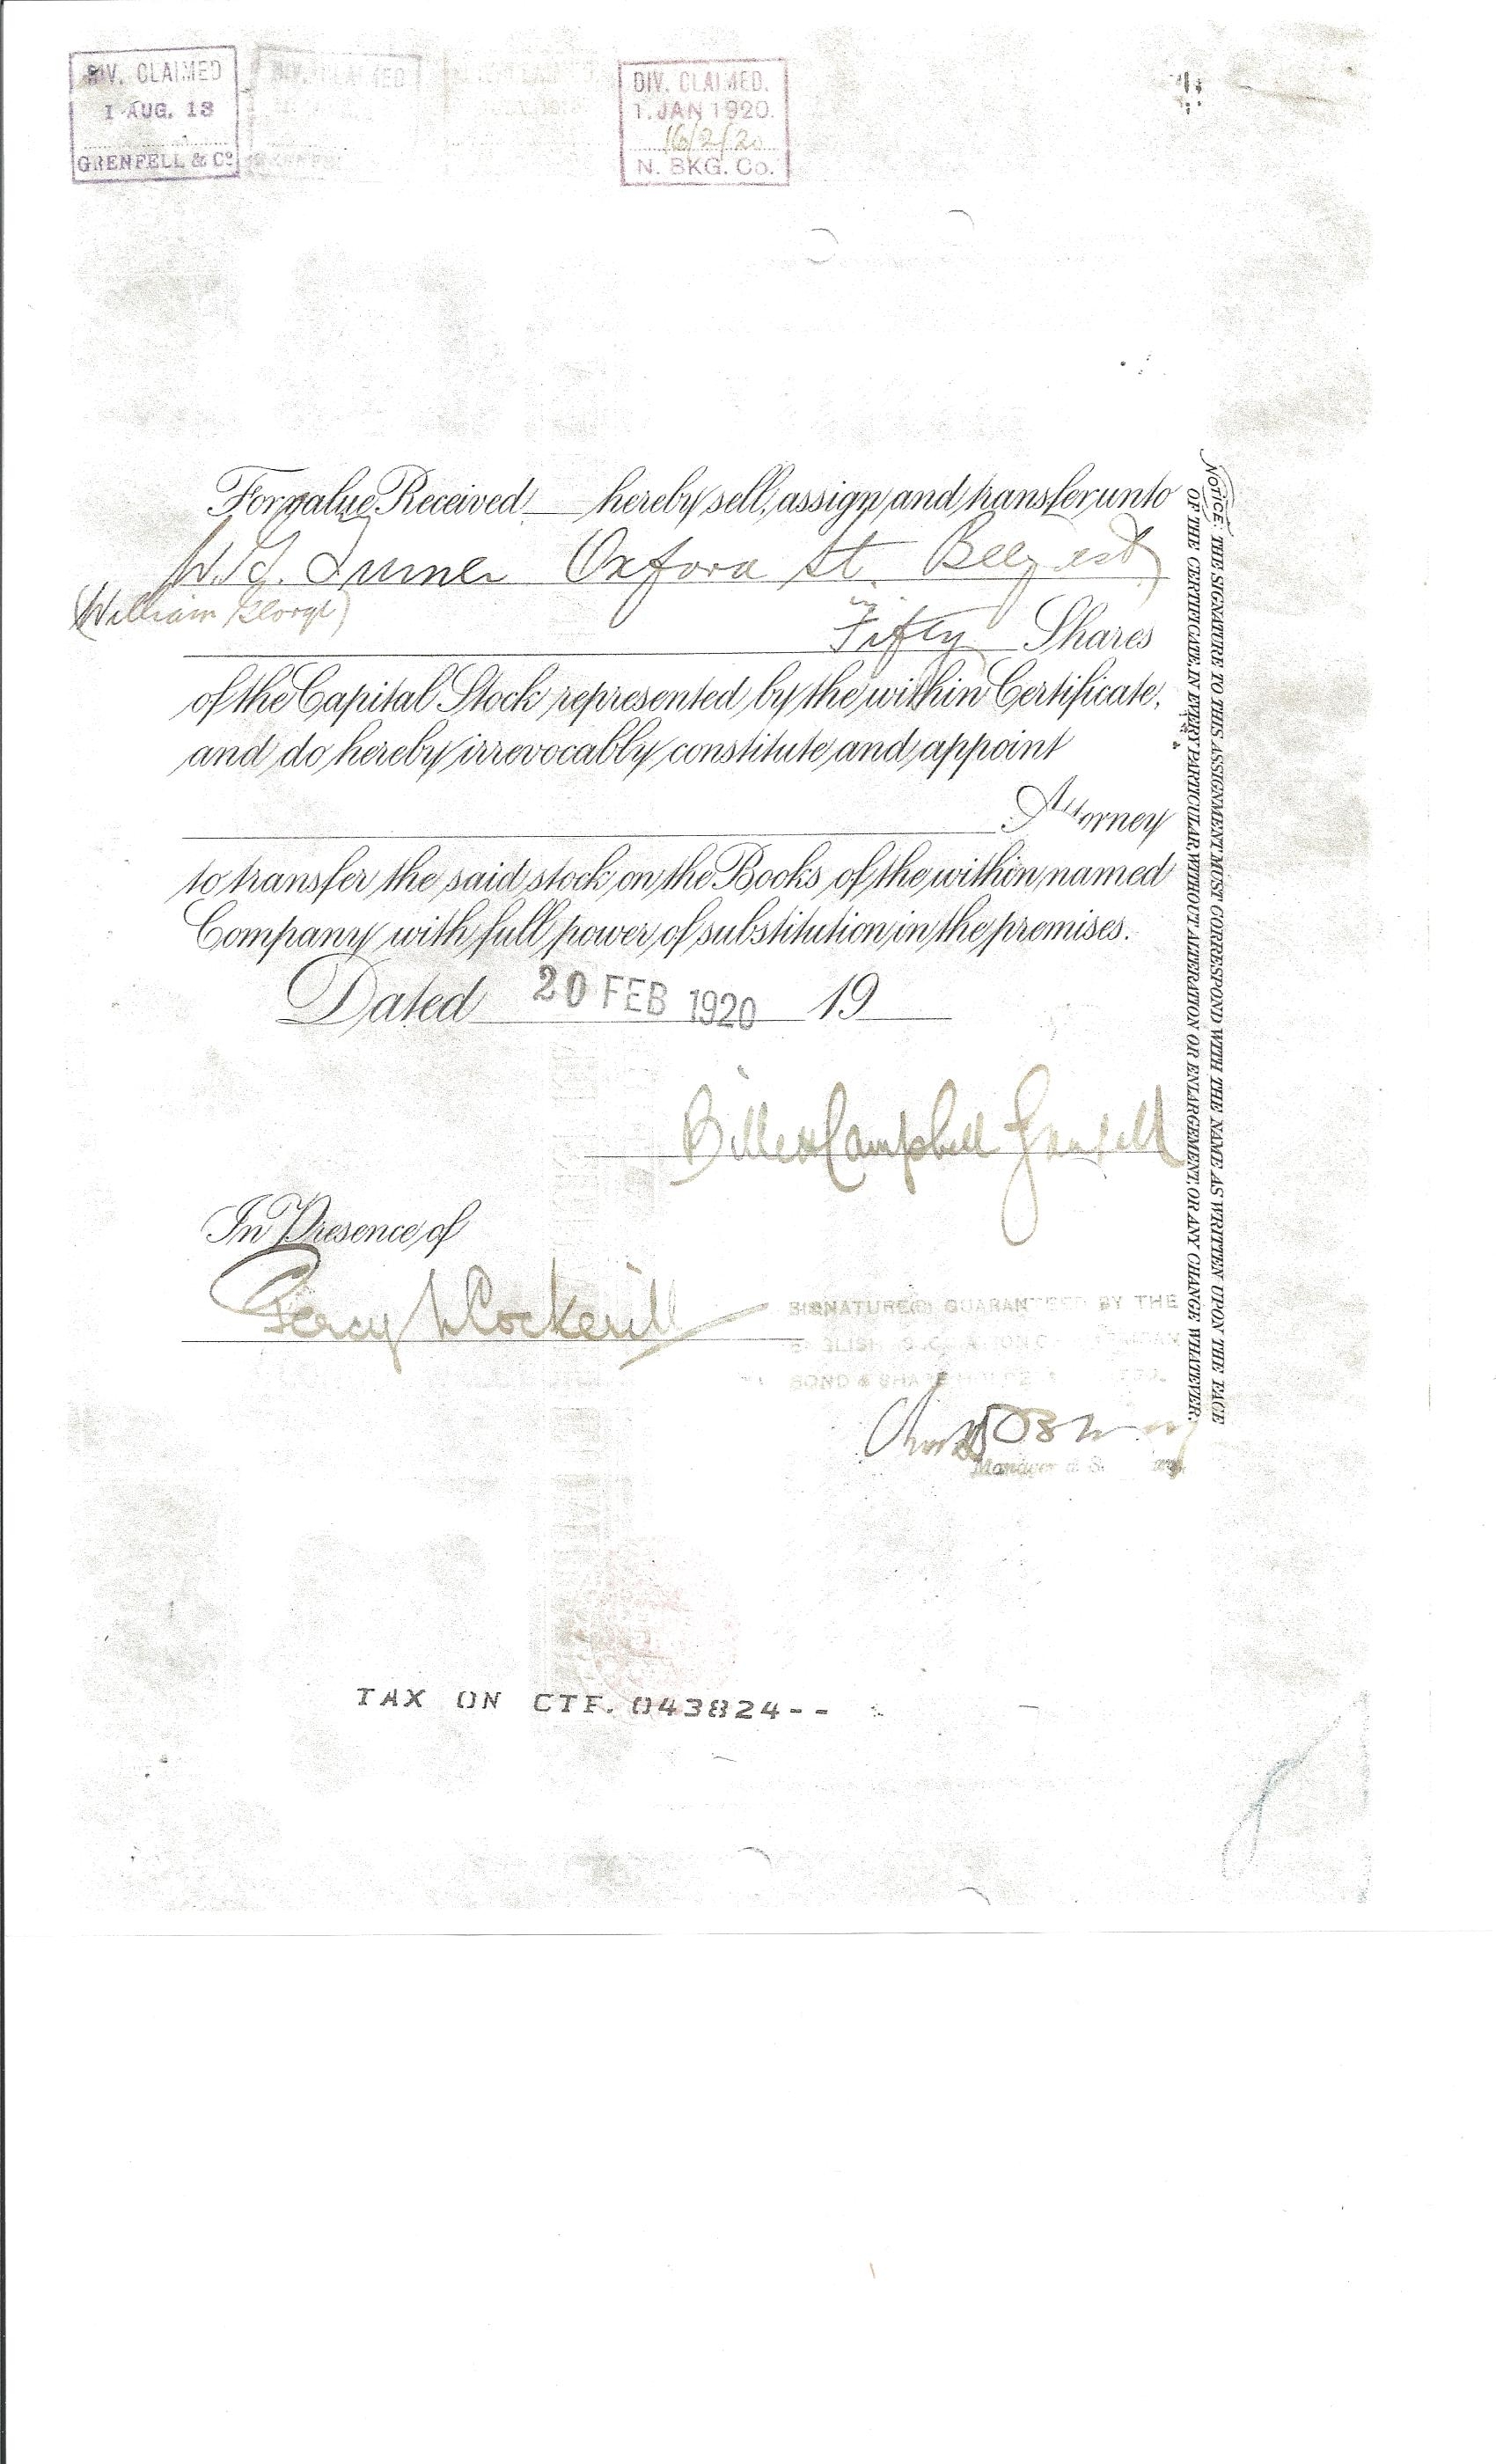 DIV. CLAIMED
1 AUG. 13
GRENFELL & Co.
DIV. CLAIMED
DIV. CLAIMED.
1. JAN 1920.
16/2/20
N. BKG. Co.
For value Received hereby sell, assign and transfer unto
W. G. Turner Oxford St. Belfast
(William George)
Fifty Shares
of the Capital Stock represented by the within Certificate,
and do hereby irrevocably constitute and appoint
Attorney
to transfer the said stock on the Books of the within named
Company with full power of substitution in the premises.
Dated 20 FEB 1920 19
Billett Campbell Grenfell
In Presence of
Percy Cockerill
SIGNATURE(S) GUARANTEED BY THE
ENGLISH ASSOCIATION OF AMERICAN
BOND & SHAREHOLDERS LTD.
Manager & Secretary
TAX ON CTF. 043824--
NOTICE: THE SIGNATURE TO THIS ASSIGNMENT MUST CORRESPOND WITH THE NAME AS WRITTEN UPON THE FACE
OF THE CERTIFICATE, IN EVERY PARTICULAR, WITHOUT ALTERATION OR ENLARGEMENT, OR ANY CHANGE WHATEVER.